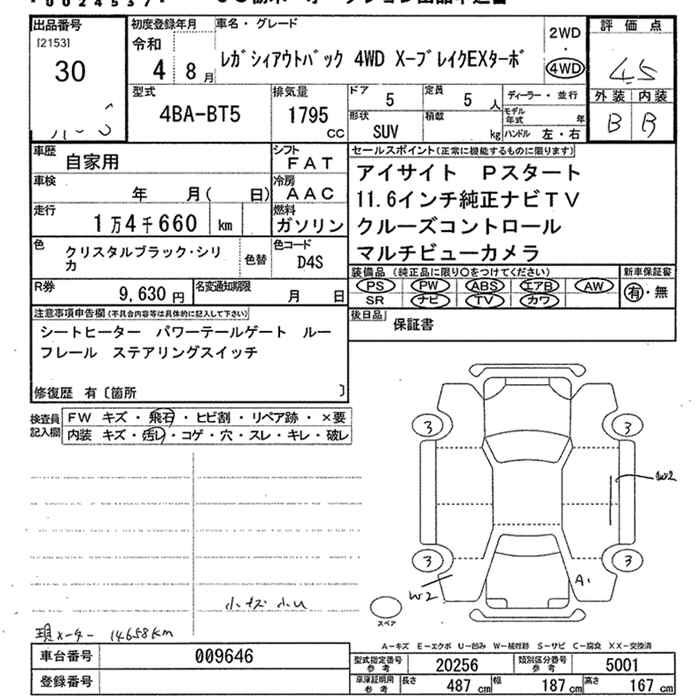 出品番号
[2153]
30
初度登録年月
令和
4 8月
車名・グレード
レガシィアウトバック 4WD X-ブレイクEXターボ
2WD
・
4WD
評価点
4.5
外装 内装
B B
型式
4BA-BT5
排気量
1795
CC
ドア
5
定員
5 人
形状
SUV
積載
kg
ディーラー・並行
モデル年式 年
ハンドル 左・右
車歴
自家用
シフト
FAT
車検
年 月( 日)
冷房
AAC
走行
1万4千660 km
燃料
ガソリン
色
クリスタルブラック・シリ
カ
色替
色コード
D4S
R券
9,630 円
名変通知期限
月 日
セールスポイント(正常に機能するものに限ります)
アイサイト Pスタート
11.6インチ純正ナビTV
クルーズコントロール
マルチビューカメラ
装備品 (純正品に限り○をつけてください)
PS PW ABS エアB AW
SR ナビ TV カワ
新車保証書
有・無
後日品
保証書
注意事項申告欄(不具合内容等は具体的に記入して下さい)
シートヒーター パワーテールゲート ルー
フレール ステアリングスイッチ
修復歴 有〔箇所 〕
検査員
記入欄
FW キズ・飛石・ヒビ割・リペア跡・×要
内装 キズ・汚レ・コゲ・穴・スレ・キレ・破レ
3 3
W2
3 3
W2
A1
スペア
小キズ 小U
現メーター 14658km
A-キズ E-エクボ U-凹み W-補修跡 S-サビ C-腐食 XX-交換済
車台番号
009646
登録番号
型式指定番号
参考
20256
類別区分番号
参考
5001
車庫証明用
参考
長さ 487 cm
幅 187 cm
高さ 167 cm